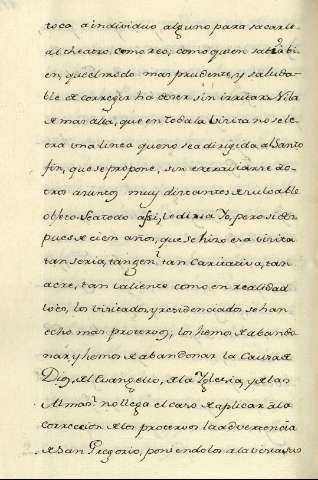 toca a individuo alguno para sacarle
al theatro como reo; como quien sabrá bi
en, que el modo mas prudente, y saluda-
ble de corregir ha de ser sin irritar. Vibi
de mas alla, que en toda la Visita no se le-
era una linea que no sea dirigida al Santo
fin, que se propone, sin extraviarse de o
tros asuntos muy distantes de su loable
objeto. Sea todo assi, le diria Yo, pero si des
pues de cien años, que se hizo esa visita
tan seria, tan gen.l tan Caritativa, tan
acre, tan valiente como en realidad
lo es, los visitados, y residenciados se han
echo mas protervos; los hemos de abando
nar, y hemos de abandonar la Causa de
Dios, del Evangelio, de la Yglesia, y de las
Almas? no llega el caso de aplicar a la
correccion de los protervos la advertencia
de San Gregorio, poniendolos a la verguenza